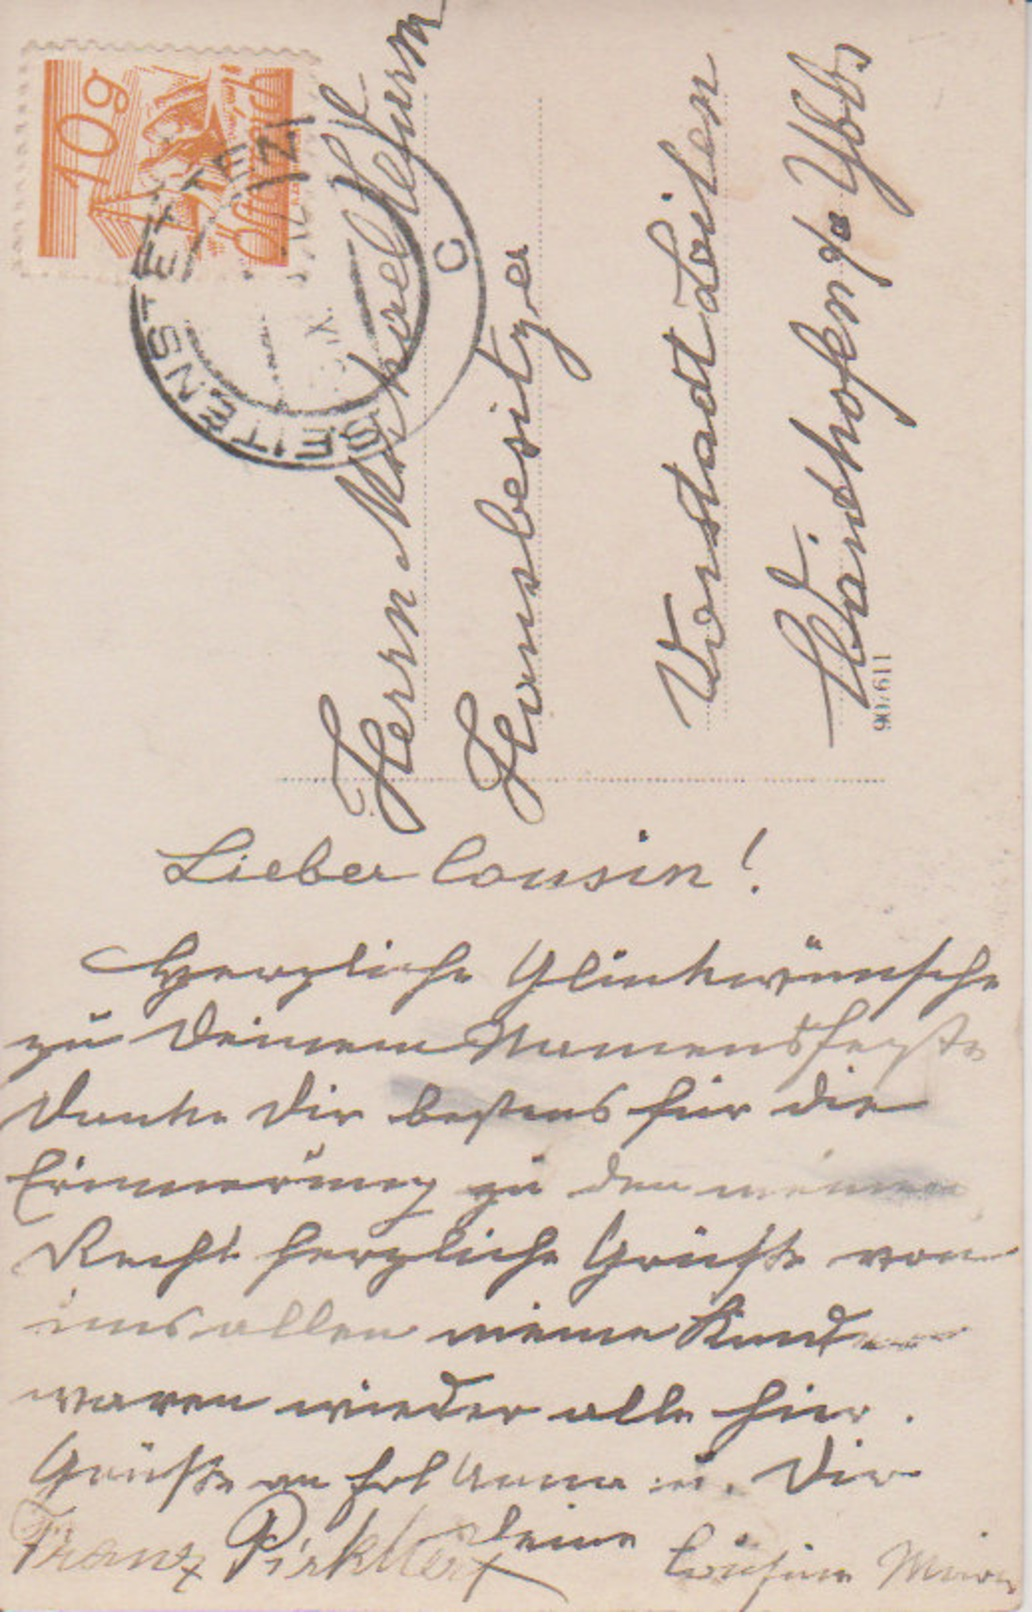 10g
Österreich
SEITENSTETTEN
C
Herrn Michael
Hausbesitzer
Vorstadt Leiten
Waidhofen a/d Ybbs
90/611
Lieber Cousin!
Herzliche Glückwünsche
zu Deinem Namensfeste
Danke Dir bestens für die
Erinnerung zu den meinen
Recht herzliche Grüße von
uns allen meine Kinder
waren wieder alle hier.
Grüße an Frl Anna u. Dir
Deine Cousine Marie
Franz